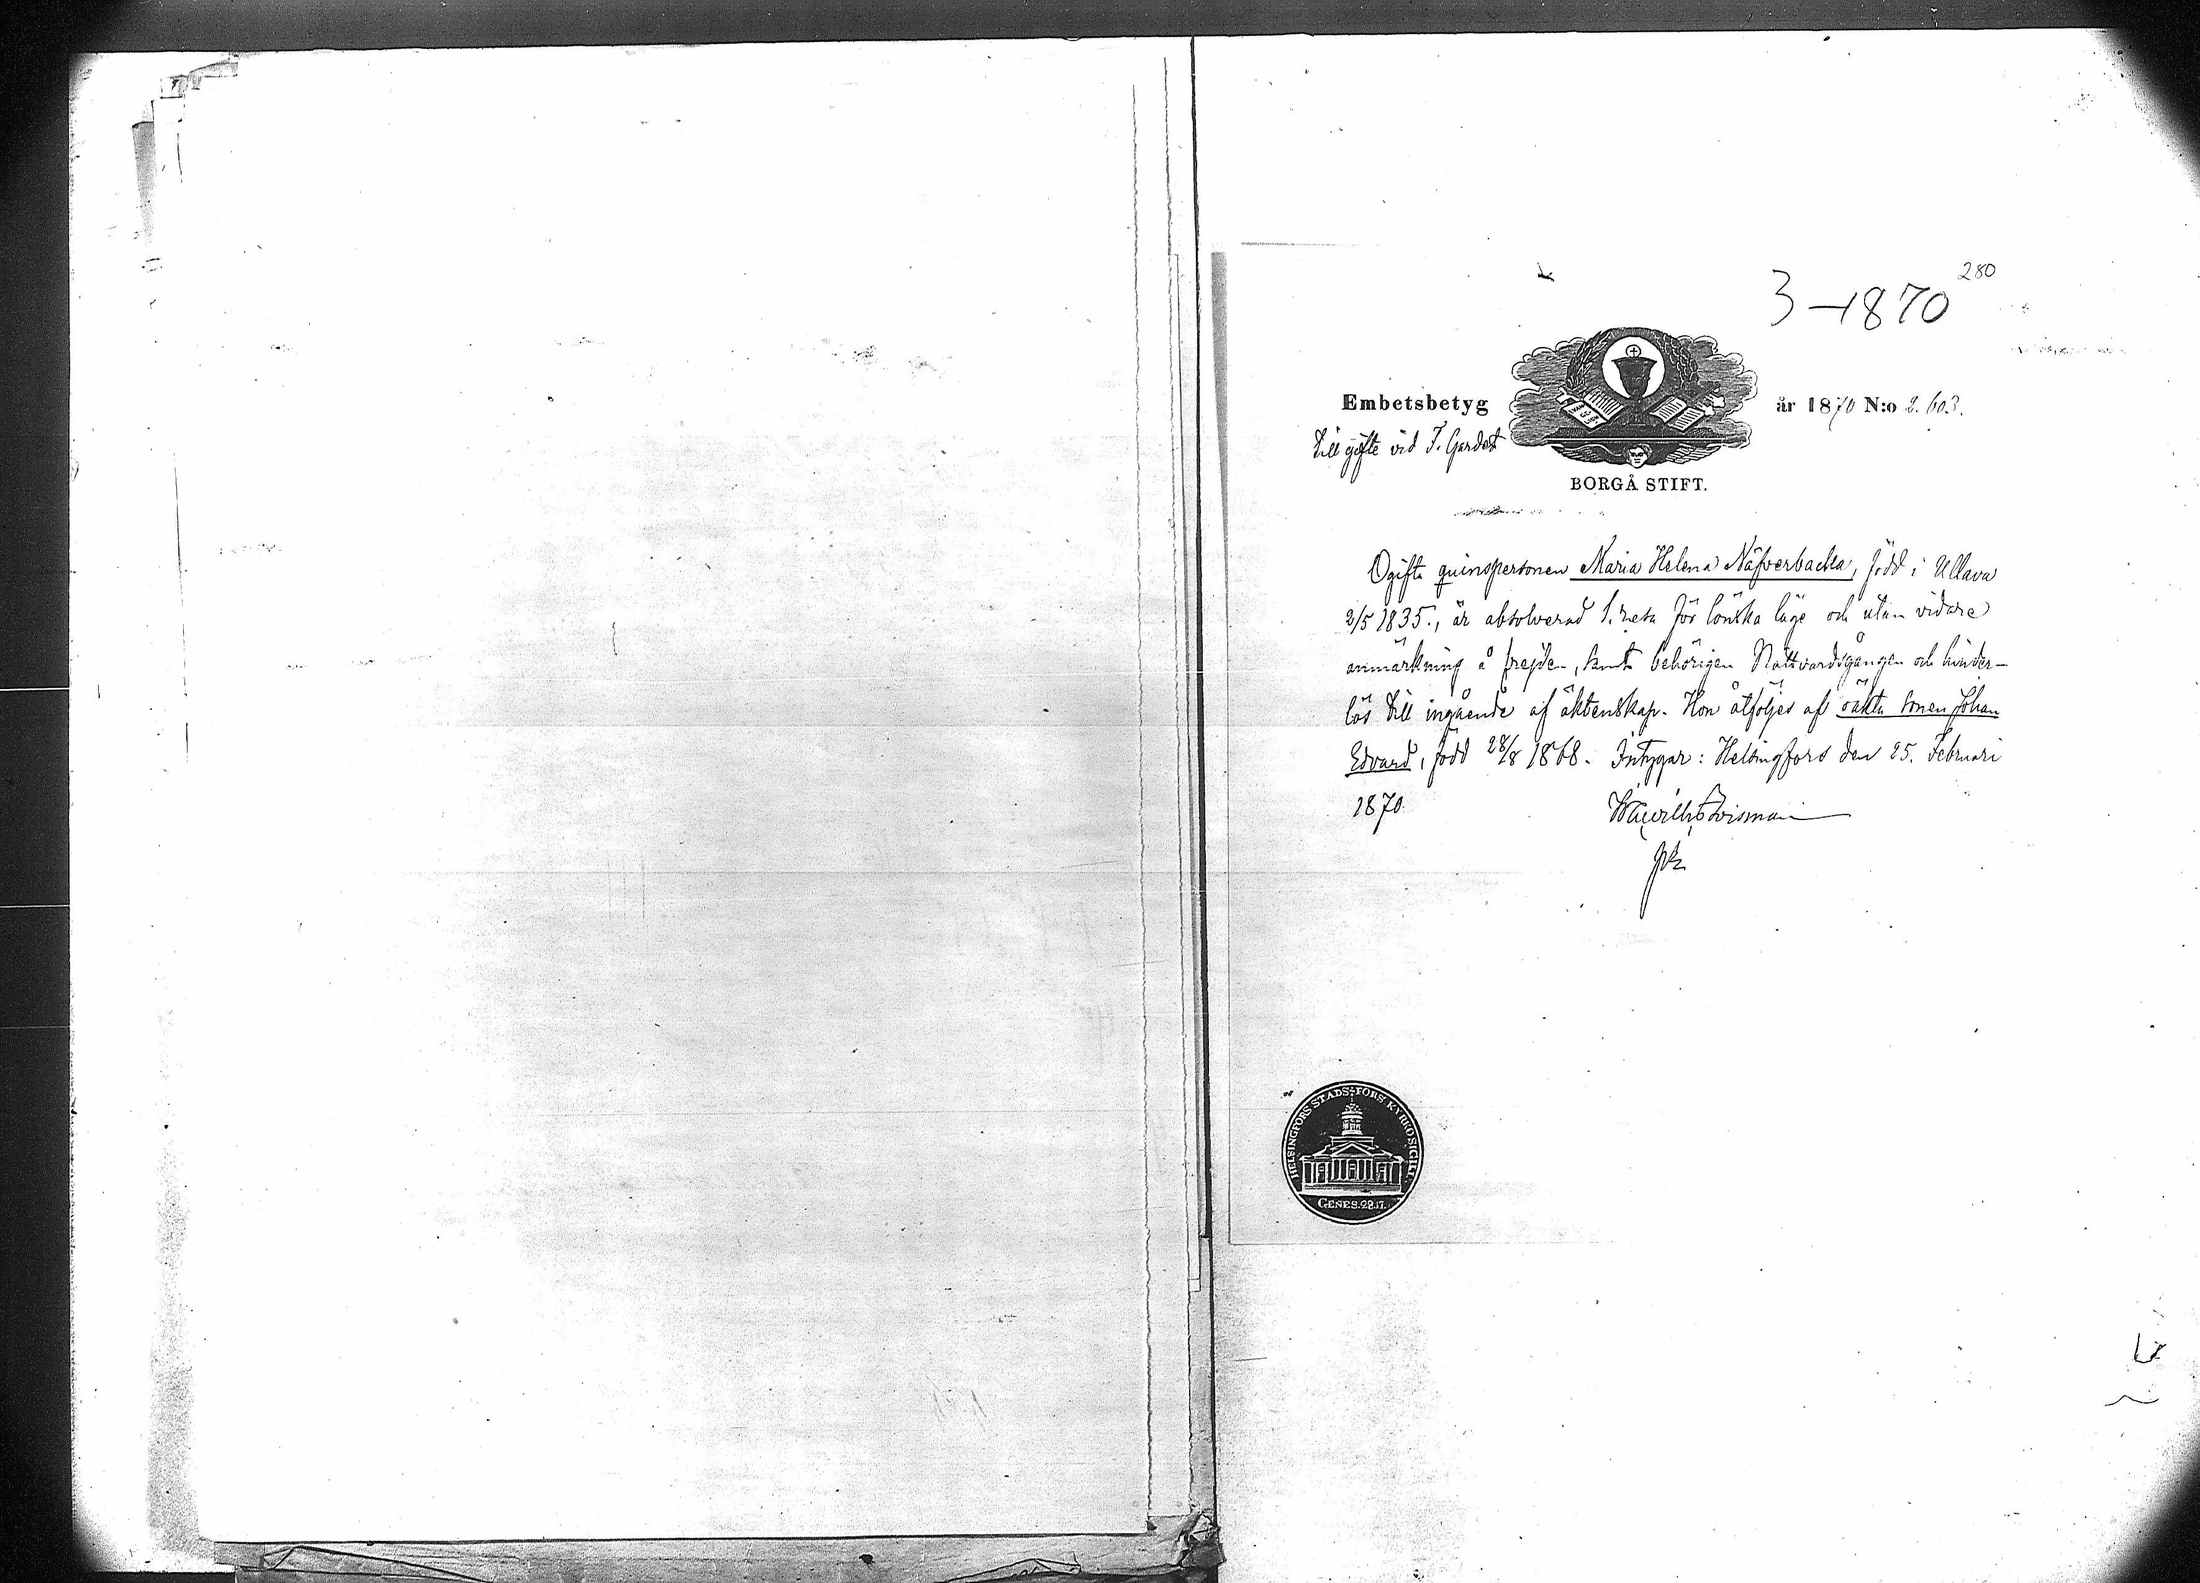 280
3-1870
Embetsbetyg år 1870 N:o 2.603.
till gifte vid F. Gardet
BORGÅ STIFT.
Ogifta qvinspersonen Maria Helena Näfverbacka, född i Ullava
2/5 1835., är absolverad 1. resa för lönska läge och utan vidare
anmärkning å frejden, samt behörigen Nattvardsgången och hinder-
lös till ingående af äktenskap. Hon åtföljes af oäkta sonen Johan
Edvard, född 28/8 1868. Intygar: Helsingfors den 25. Februari
1870.
HELSINGFORS STADS-FÖRS. KYRKO SIGILL.
GENES. 28.17.